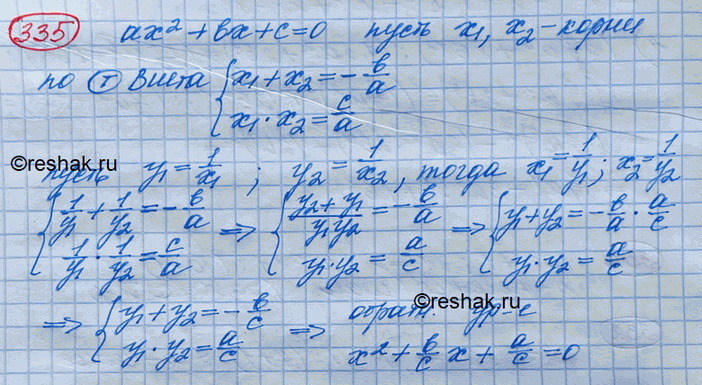 335 ax² + вx + c = 0 пусть x₁, x₂ – корни
по Т Виета { x₁ + x₂ = -в/a
x₁ · x₂ = c/a
©reshak.ru
пусть y₁ = 1/x₁ ; y₂ = 1/x₂, тогда x₁ = 1/y₁; x₂ = 1/y₂
{ 1/y₁ + 1/y₂ = -в/a ⇒ { (y₂ + y₁)/(y₁y₂) = -в/a ⇒ { y₁ + y₂ = -в/a · a/c
1/y₁ · 1/y₂ = c/a y₁ · y₂ = a/c y₁ · y₂ = a/c
©reshak.ru
⇒ { y₁ + y₂ = -в/c ⇒ обратн. ур-е
y₁ · y₂ = a/c x² + в/c x + a/c = 0